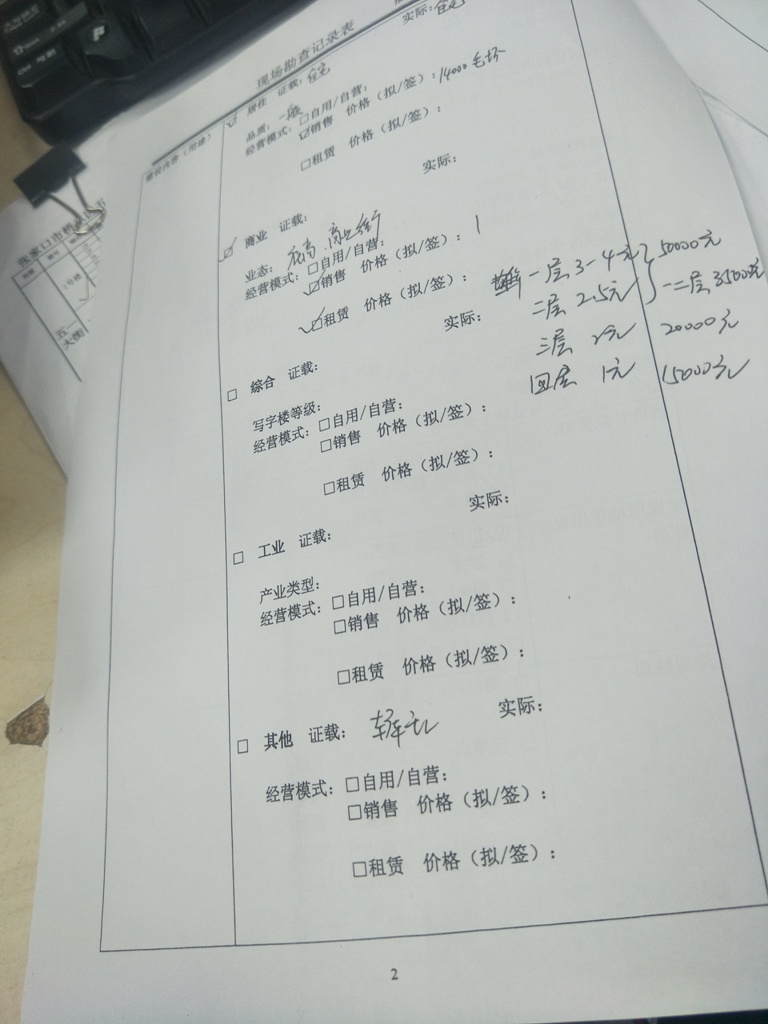 现场勘查记录表
建设内容（用途）
☑ 居住 证载：住宅 实际：住宅
品质：一般
经营模式：□自用/自营：
☑销售 价格（拟/签）：14000 毛坯
□租赁 价格（拟/签）：
☑ 商业 证载： 实际：
业态：底商、商业街
经营模式：□自用/自营：
☑销售 价格（拟/签）：
☑租赁 价格（拟/签）：
一层 3-4元 50000元
二层 2.5元 一二层 35000元
三层 2元 20000元
四层 1元 15000元
□ 综合 证载： 实际：
写字楼等级：
经营模式：□自用/自营：
□销售 价格（拟/签）：
□租赁 价格（拟/签）：
□ 工业 证载： 实际：
产业类型：
经营模式：□自用/自营：
□销售 价格（拟/签）：
□租赁 价格（拟/签）：
□ 其他 证载： 实际：
经营模式：□自用/自营：
□销售 价格（拟/签）：
□租赁 价格（拟/签）：
2
张家口市桥
五一
大街